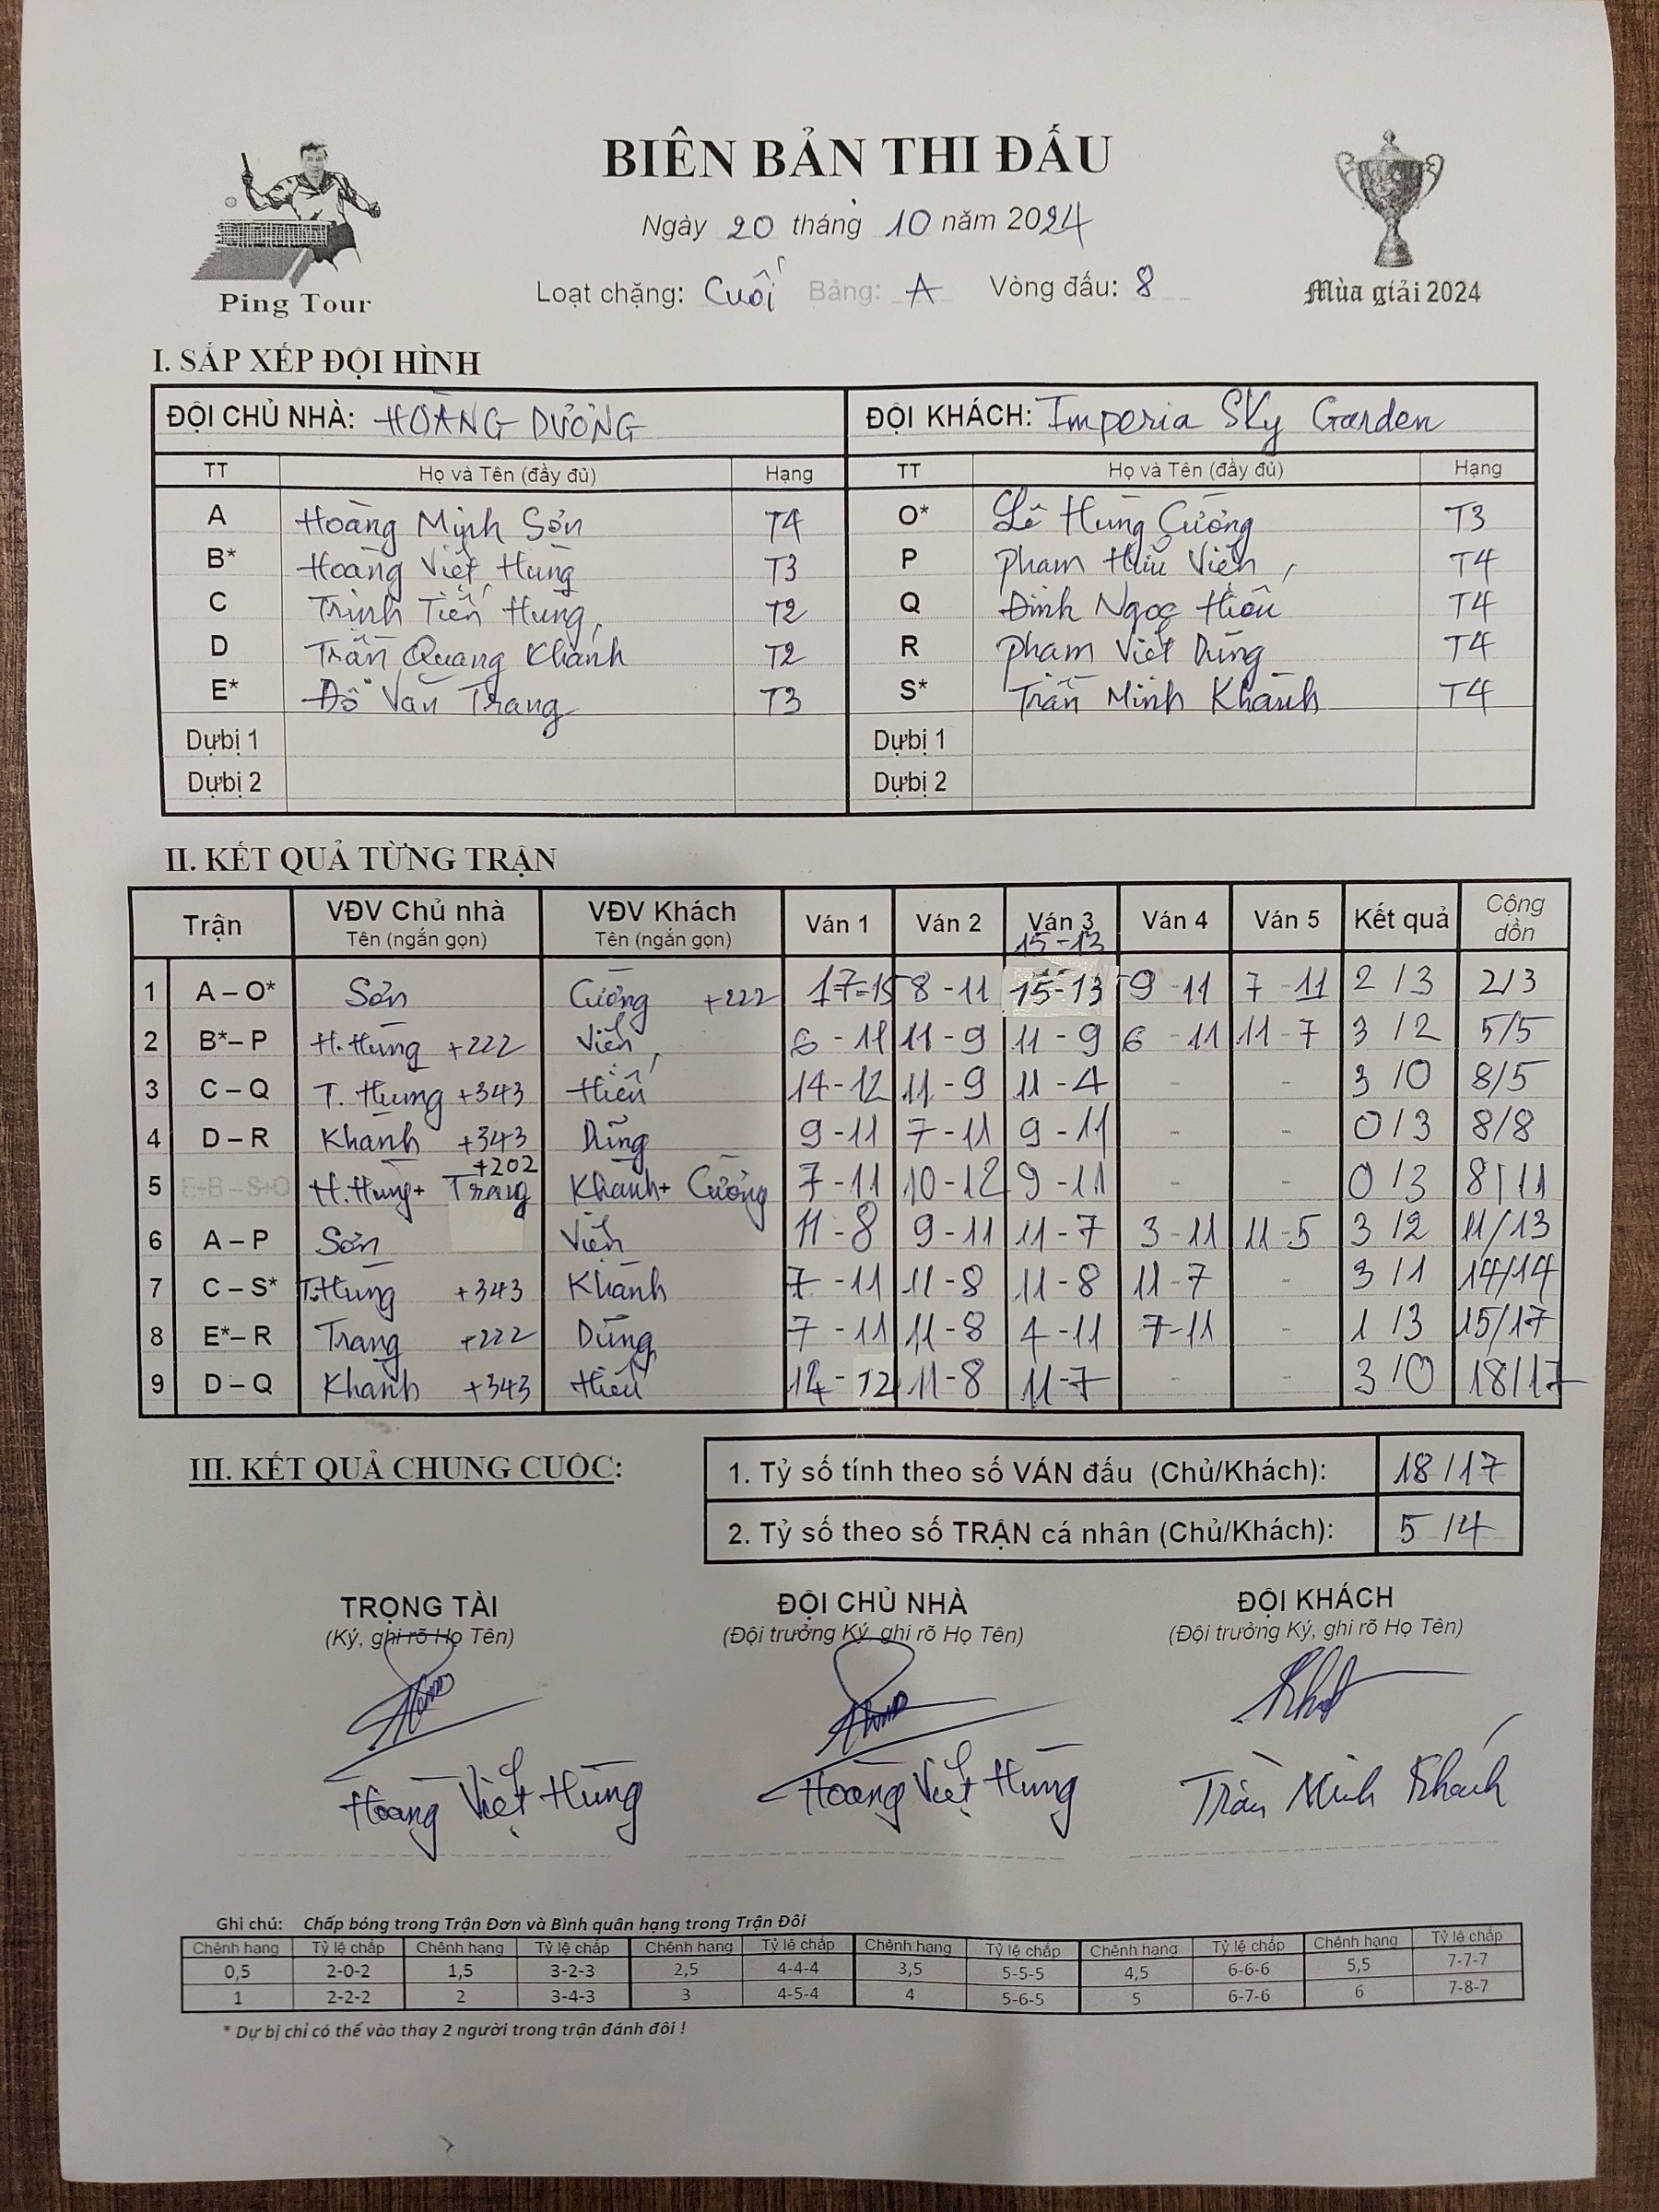 BIÊN BẢN THI ĐẤU
Ngày 20 tháng 10 năm 2024
Loạt chặng: Cuối Bảng: A Vòng đấu: 8
Ping Tour
Mùa giải 2024
I. SẮP XẾP ĐỘI HÌNH
ĐỘI CHỦ NHÀ: HOÀNG DƯƠNG ĐỘI KHÁCH: Imperia Sky Garden
TT Họ và Tên (đầy đủ) Hạng TT Họ và Tên (đầy đủ) Hạng
A Hoàng Minh Sơn T4 O* Lê Hùng Cường T3
B* Hoàng Việt Hùng T3 P Phạm Hữu Viễn T4
C Trịnh Tiến Hùng T2 Q Đinh Ngọc Hiếu T4
D Trần Quang Khánh T2 R Phạm Việt Dũng T4
E* Đỗ Văn Trang T3 S* Trần Minh Khánh T4
Dự bị 1 Dự bị 1
Dự bị 2 Dự bị 2
II. KẾT QUẢ TỪNG TRẬN
Trận VĐV Chủ nhà VĐV Khách Ván 1 Ván 2 Ván 3 Ván 4 Ván 5 Kết quả Cộng dồn
Tên (ngắn gọn) Tên (ngắn gọn)
15-13
1 A – O* Sơn Cường +222 17-15 8-11 15-13 9-11 7-11 2/3 2/3
2 B*– P H.Hùng +222 Viễn 6-11 11-9 11-9 6-11 11-7 3/2 5/5
3 C – Q T. Hùng +343 Hiếu 14-12 11-9 11-4 - - 3/0 8/5
4 D – R Khánh +343 Dũng 9-11 7-11 9-11 - - 0/3 8/8
+202
5 E+B – S+O H.Hùng+ Trang Khánh+ Cường 7-11 10-12 9-11 - - 0/3 8/11
6 A – P Sơn Viễn 11-8 9-11 11-7 3-11 11-5 3/2 11/13
7 C – S* T.Hùng +343 Khánh 7-11 11-8 11-8 11-7 - 3/1 14/14
8 E*– R Trang +222 Dũng 7-11 11-8 4-11 7-11 - 1/3 15/17
9 D – Q Khánh +343 Hiếu 14-12 11-8 11-7 - - 3/0 18/17
III. KẾT QUẢ CHUNG CUỘC:
1. Tỷ số tính theo số VÁN đấu (Chủ/Khách): 18/17
2. Tỷ số theo số TRẬN cá nhân (Chủ/Khách): 5/4
TRỌNG TÀI ĐỘI CHỦ NHÀ ĐỘI KHÁCH
(Ký, ghi rõ Họ Tên) (Đội trưởng Ký, ghi rõ Họ Tên) (Đội trưởng Ký, ghi rõ Họ Tên)
Hoàng Việt Hùng Hoàng Việt Hùng Trần Minh Khánh
Ghi chú: Chấp bóng trong Trận Đơn và Bình quân hạng trong Trận Đôi
Chênh hạng Tỷ lệ chấp Chênh hạng Tỷ lệ chấp Chênh hạng Tỷ lệ chấp Chênh hạng Tỷ lệ chấp Chênh hạng Tỷ lệ chấp Chênh hạng Tỷ lệ chấp
0,5 2-0-2 1,5 3-2-3 2,5 4-4-4 3,5 5-5-5 4,5 6-6-6 5,5 7-7-7
1 2-2-2 2 3-4-3 3 4-5-4 4 5-6-5 5 6-7-6 6 7-8-7
* Dự bị chỉ có thể vào thay 2 người trong trận đánh đôi !